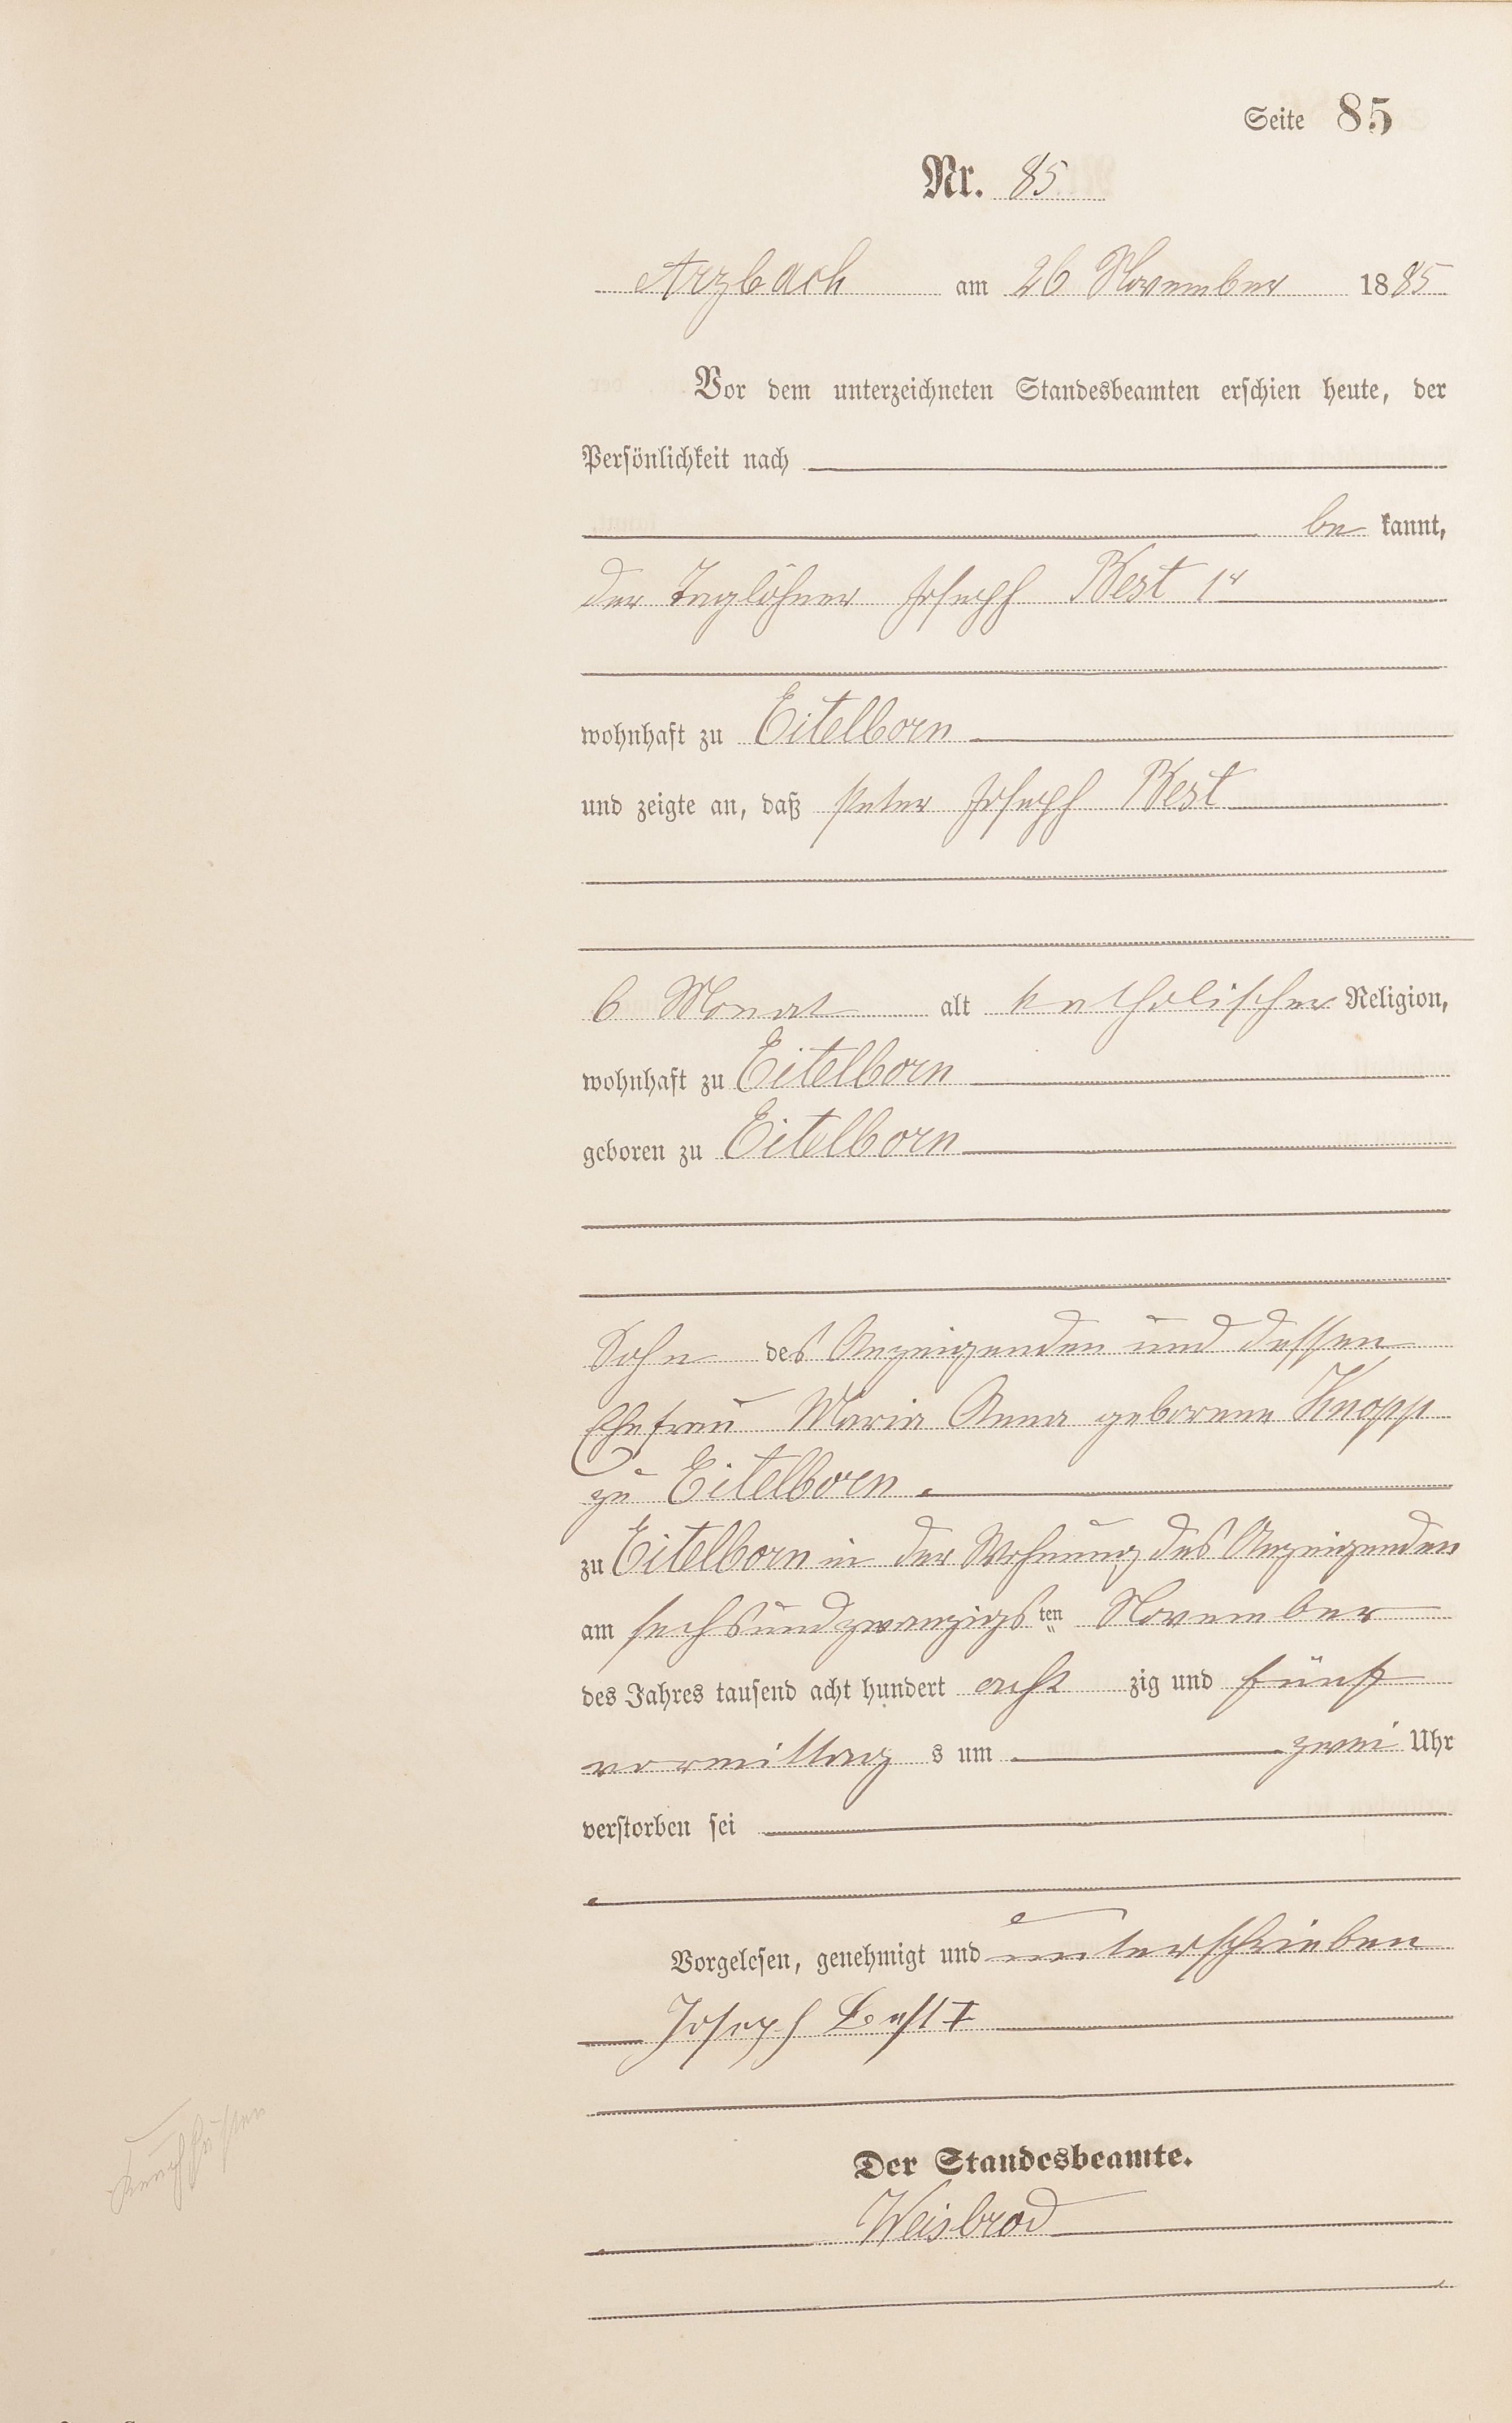 Seite 85
Nr. 85
Arzbach am 26 November 1885
Vor dem unterzeichneten Standesbeamten erschien heute, der
Persönlichkeit nach
be kannt,
der Taglöhner Joseph Best 1r
wohnhaft zu Eitelborn
und zeigte an, daß Peter Joseph Best
6 Monat alt katholischer Religion,
wohnhaft zu Eitelborn
geboren zu Eitelborn
Sohn des Anzeigenden und dessen
Ehefrau Maria Anna geborene Knopp
zu Eitelborn.
zu Eitelborn in der Wohnung des Anzeigenden
am sechsundzwanzigsten November
des Jahres tausend acht hundert acht zig und fünf
vormittag s um zwei Uhr
verstorben sei
Vorgelesen, genehmigt und unterschrieben
Joseph Best I
Keuchhusten
Der Standesbeamte.
Weisbrod